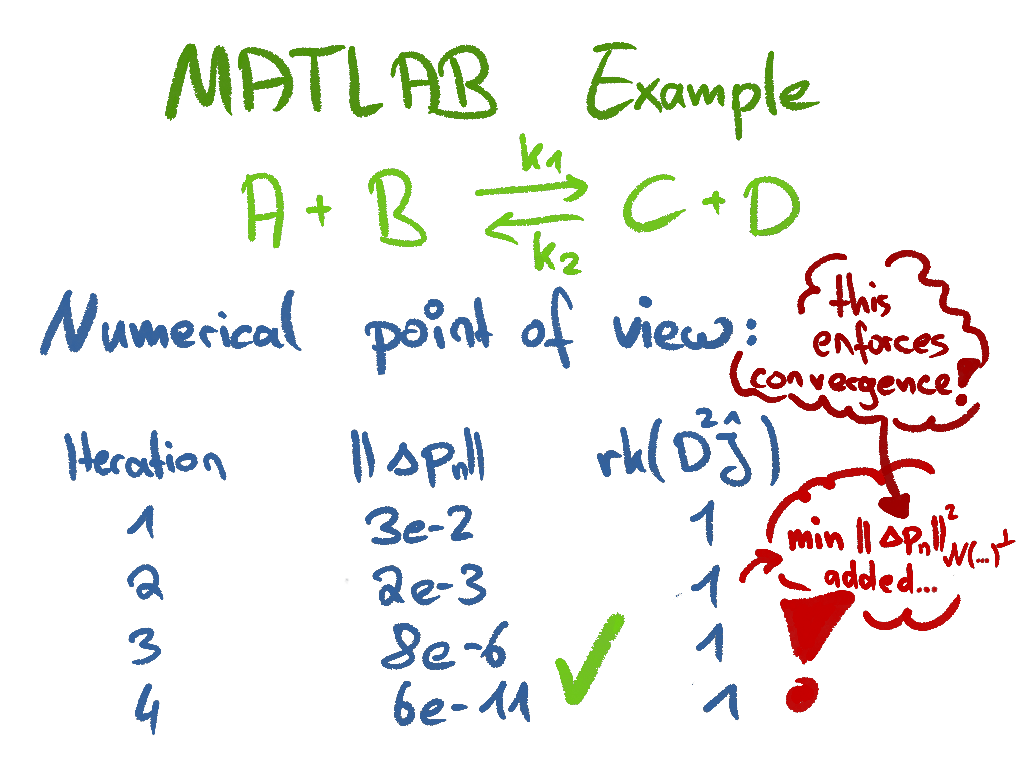 MATLAB Example
A + B ⇌ C + D
k1
k2
Numerical point of view:
this
enforces
convergence!
Iteration ||Δpₙ|| rk(D²Ĵ)
1 3e-2 1
2 2e-3 1
3 8e-6 1
4 6e-11 1
min ||Δpₙ||²_N(...)⊥
added...